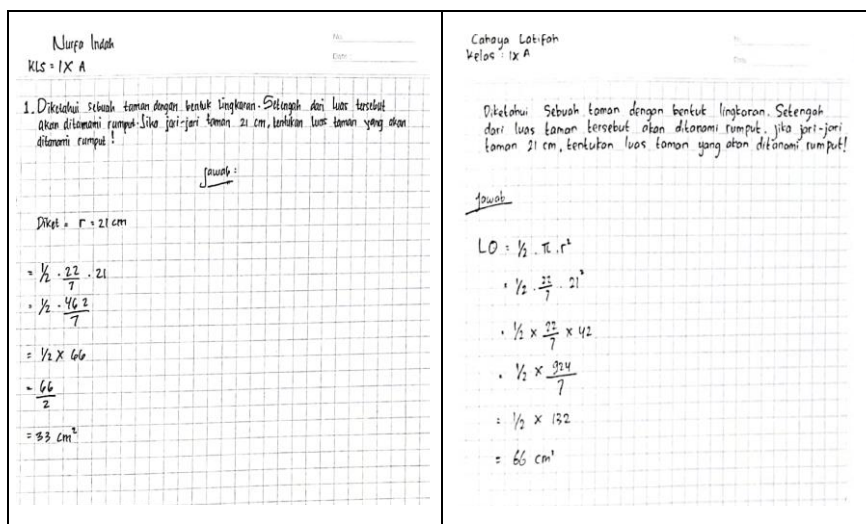 Nurfa Indah
KLS = IX A
No.
Date
1. Diketahui sebuah taman dengan bentuk lingkaran. Setengah dari luas tersebut
akan ditanami rumput. Jika jari-jari taman 21 cm, tentukan luas taman yang akan
ditanami rumput !
Jawab :
Diket = r = 21 cm
= 1/2 . 22/7 . 21
= 1/2 . 462/7
= 1/2 x 66
= 66/2
= 33 cm²
Cahaya Latifah
Kelas : IX A
Diketahui Sebuah taman dengan bentuk lingkaran. Setengah
dari luas taman tersebut akan ditanami rumput. Jika jari-jari
taman 21 cm, tentukan luas taman yang akan ditanami rumput!
Jawab
LO = 1/2 . π . r²
= 1/2 . 22/7 . 21²
= 1/2 x 22/7 x 42
= 1/2 x 924/7
= 1/2 x 132
= 66 cm²